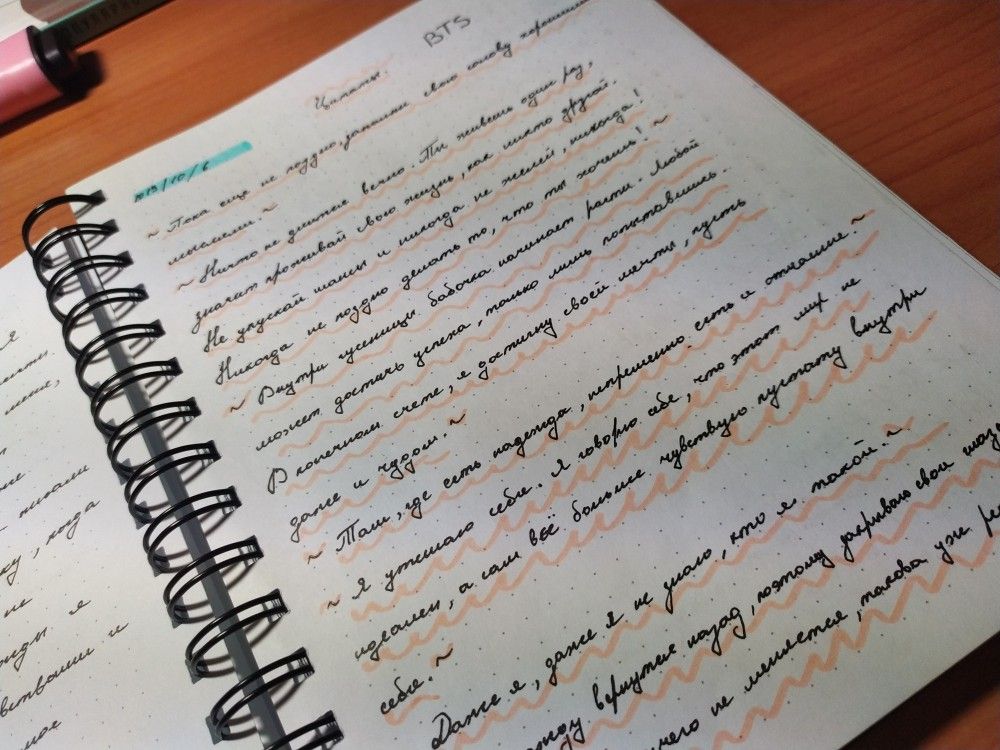 BTS
Цитаты.
~ Пока ещё не поздно, заполни свою голову хорошими
мыслями. ~
~ Ничто не длиться вечно. Ты живёшь один раз,
значит проживай свою жизнь, как никто другой.
Не упускай шансы и никогда не жалей, никогда!
Никогда не поздно делать то, что ты хочешь! ~
~ Внутри гусеницы бабочка начинает расти. Любой
может достичь успеха, только лишь попытавшись.
В конечном счете, я достигну своей мечты, пусть
даже и чудом. ~
~ Там, где есть надежда, непременно есть и отчаяние. ~
~ Я утешаю себя. Я говорю себе, что этот мих не
идеален, а сам всё больше чувствую пустоту внутри
себя. ~
Даже я, даже я не знаю, кто я такой. ~
вернуться назад, поэтому закрываю свои
не меняется, такова уже
я
писали
, когда
не
я
и